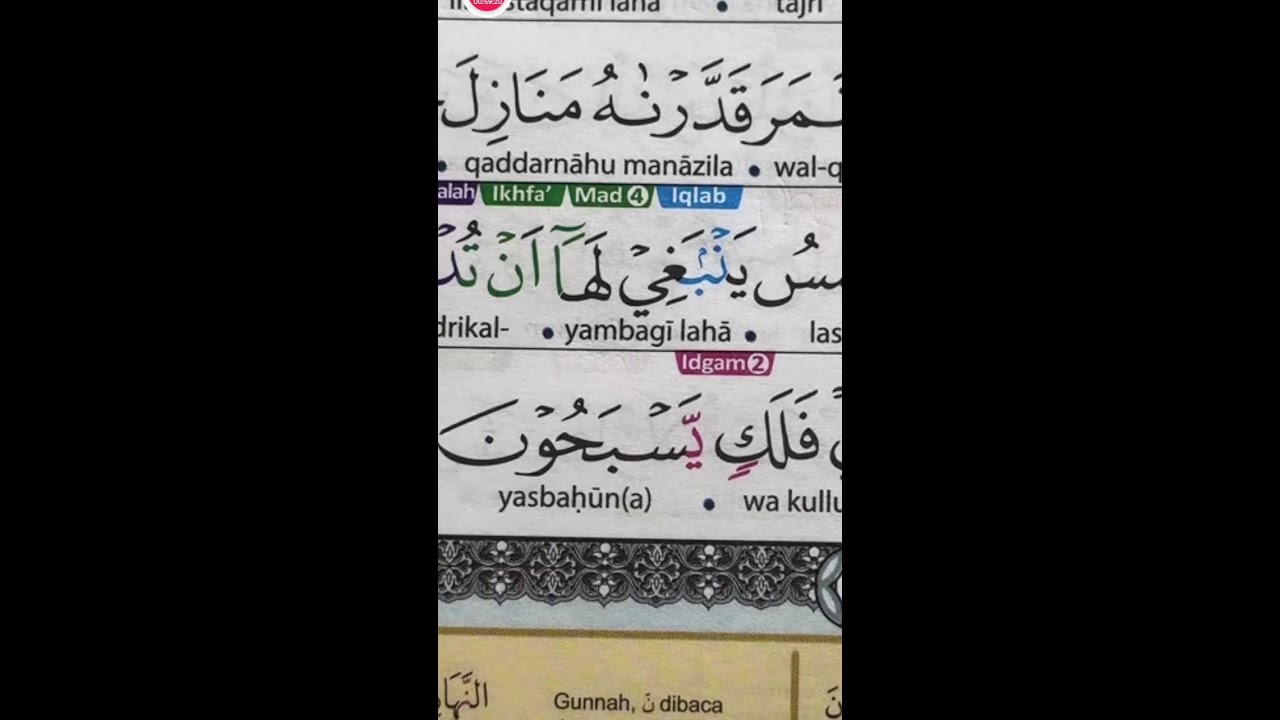 00:59:20
staqarril lahā • tajrī
قَدَّرْنٰهُ مَنَازِلَ
• qaddarnāhu manāzila • wal-q
alah Ikhfa’ Mad 4 Iqlab
يَنْۢبَغِيْ لَهَآ اَنْ تُد
drikal- • yambagī lahā • las
Idgam 2
فَلَكٍ يَّسْبَحُوْنَ
yasbaḥūn(a) • wa kullu
النَّهَا Gunnah, نّ dibaca